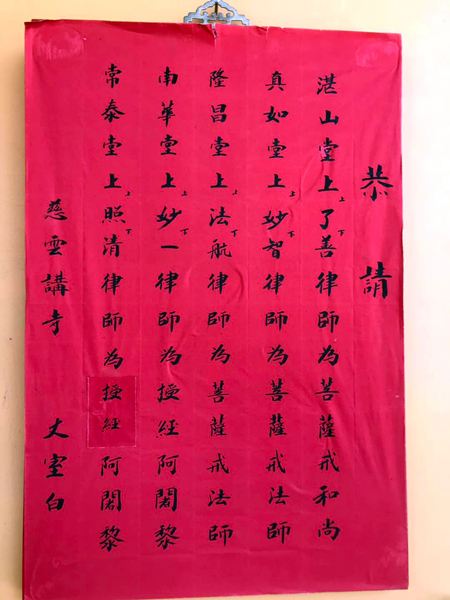 恭請
湛山堂上上了下善律師為菩薩戒和尚
真如堂上上妙下智律師為菩薩戒法師
隆昌堂上上法下航律師為菩薩戒法師
南華堂上上妙下一律師為授經阿闍黎
常泰堂上上照下清律師為授經阿闍黎
慈雲講寺 丈室白